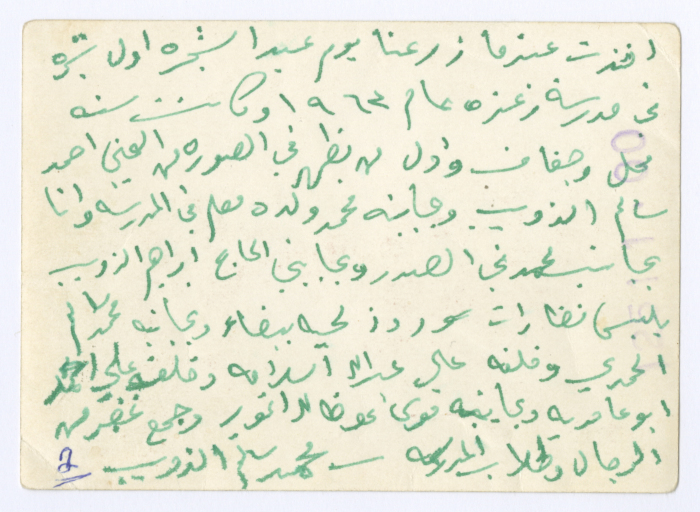 اخذت عندما زرعنا يوم عيد الشجره اول شجره
في مدرسة زعتره عام ١٩٦٣ او كانت سنه
محل وجفاف واول من يظهر في الصوره من اليمين احمد
سالم الذويب وجانبه محمد ولده معلم في المدرسة وانا
بجانب محمد في الصدر وبجانبي الحاج ابراهيم الذويب
يلبس نظارات سود وذو لحيه بيضاء وبجانبه محمد سالم
وخلفه علي عبدالله وخلفه علي احمد
ابو عامريه وبجانبه وجمع غفير من
الرجال وطلاب المدرسه محمد سالم الذويب
2